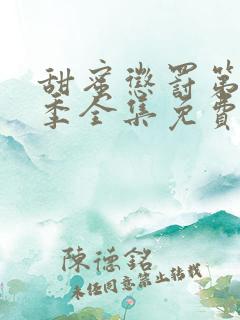 甜蜜懲罰第
季全集免費
陳德銘
未经同意禁止转载